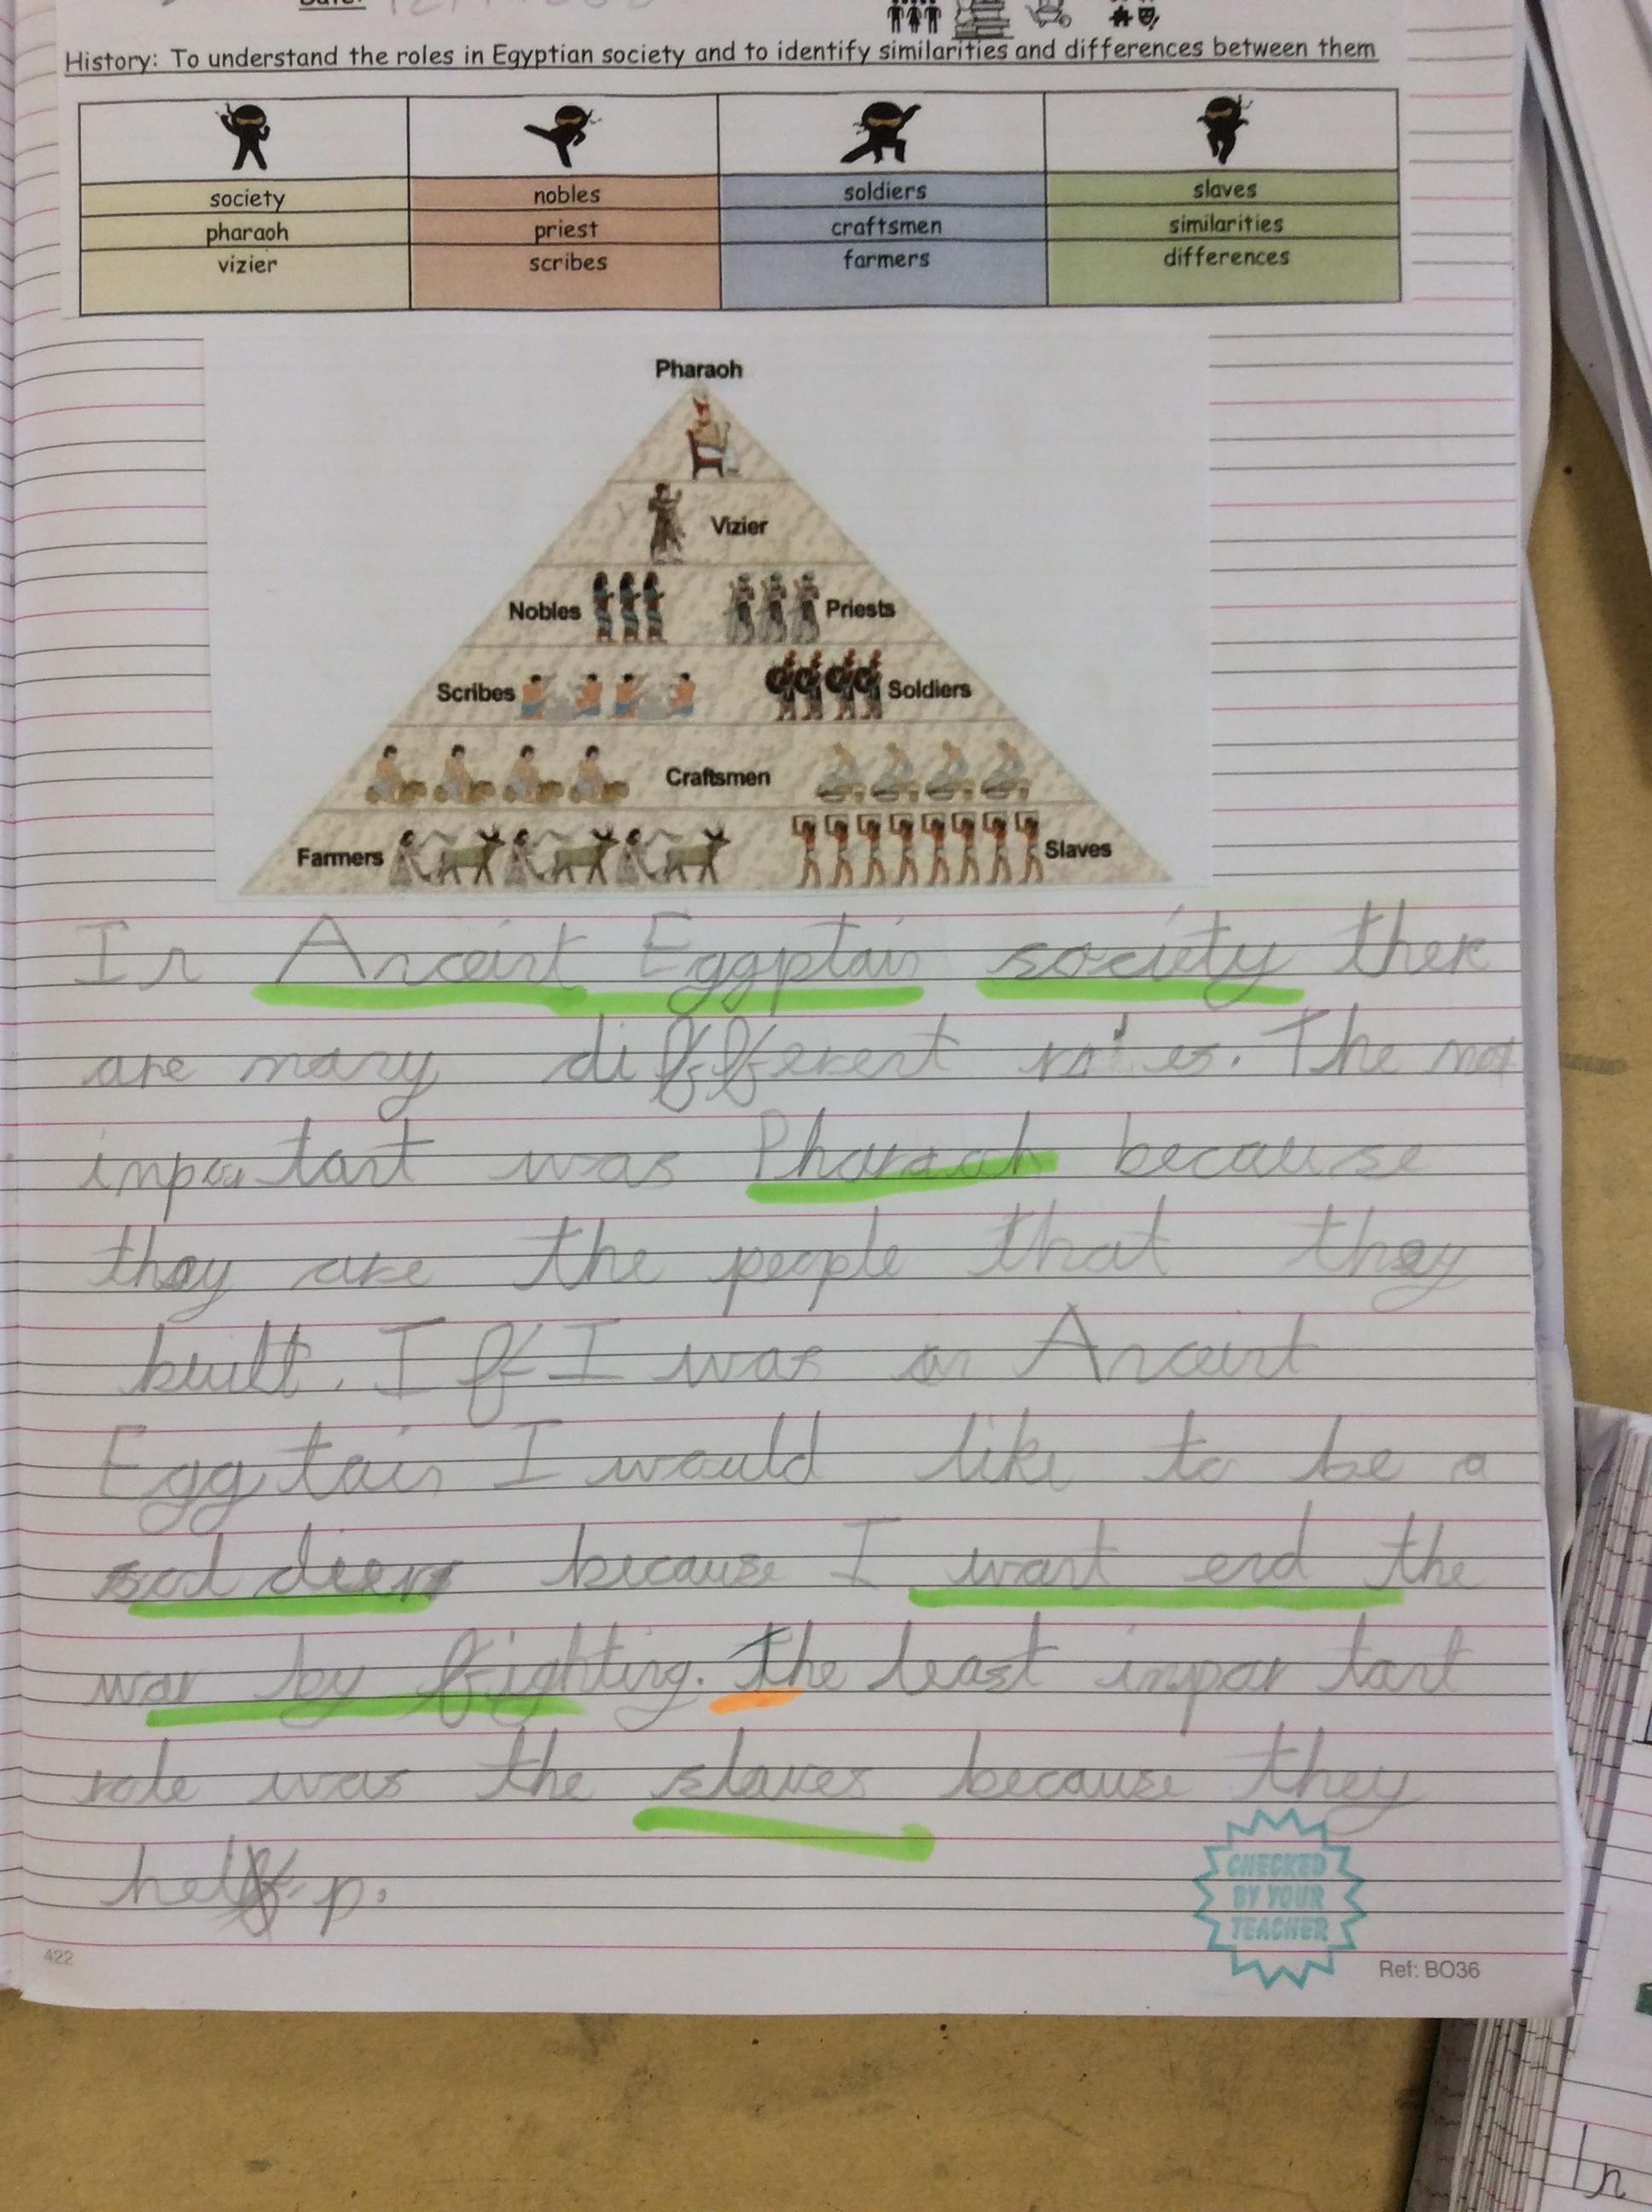 Date:
History: To understand the roles in Egyptian society and to identify similarities and differences between them
society nobles soldiers slaves
pharaoh priest craftsmen similarities
vizier scribes farmers differences
Pharaoh
Vizier
Nobles Priests
Scribes Soldiers
Craftsmen
Farmers Slaves
In Anceint Eggptain society ther
are many different roles. The most
important was Pharaoh because
they are the people that they
built. If I was an Anceint
Eggtain I would like to be a
soldier because I want end the
war by fighting. The least important
role was the slaves because they
help.
CHECKED
BY YOUR
TEACHER
422
Ref: BO36
In